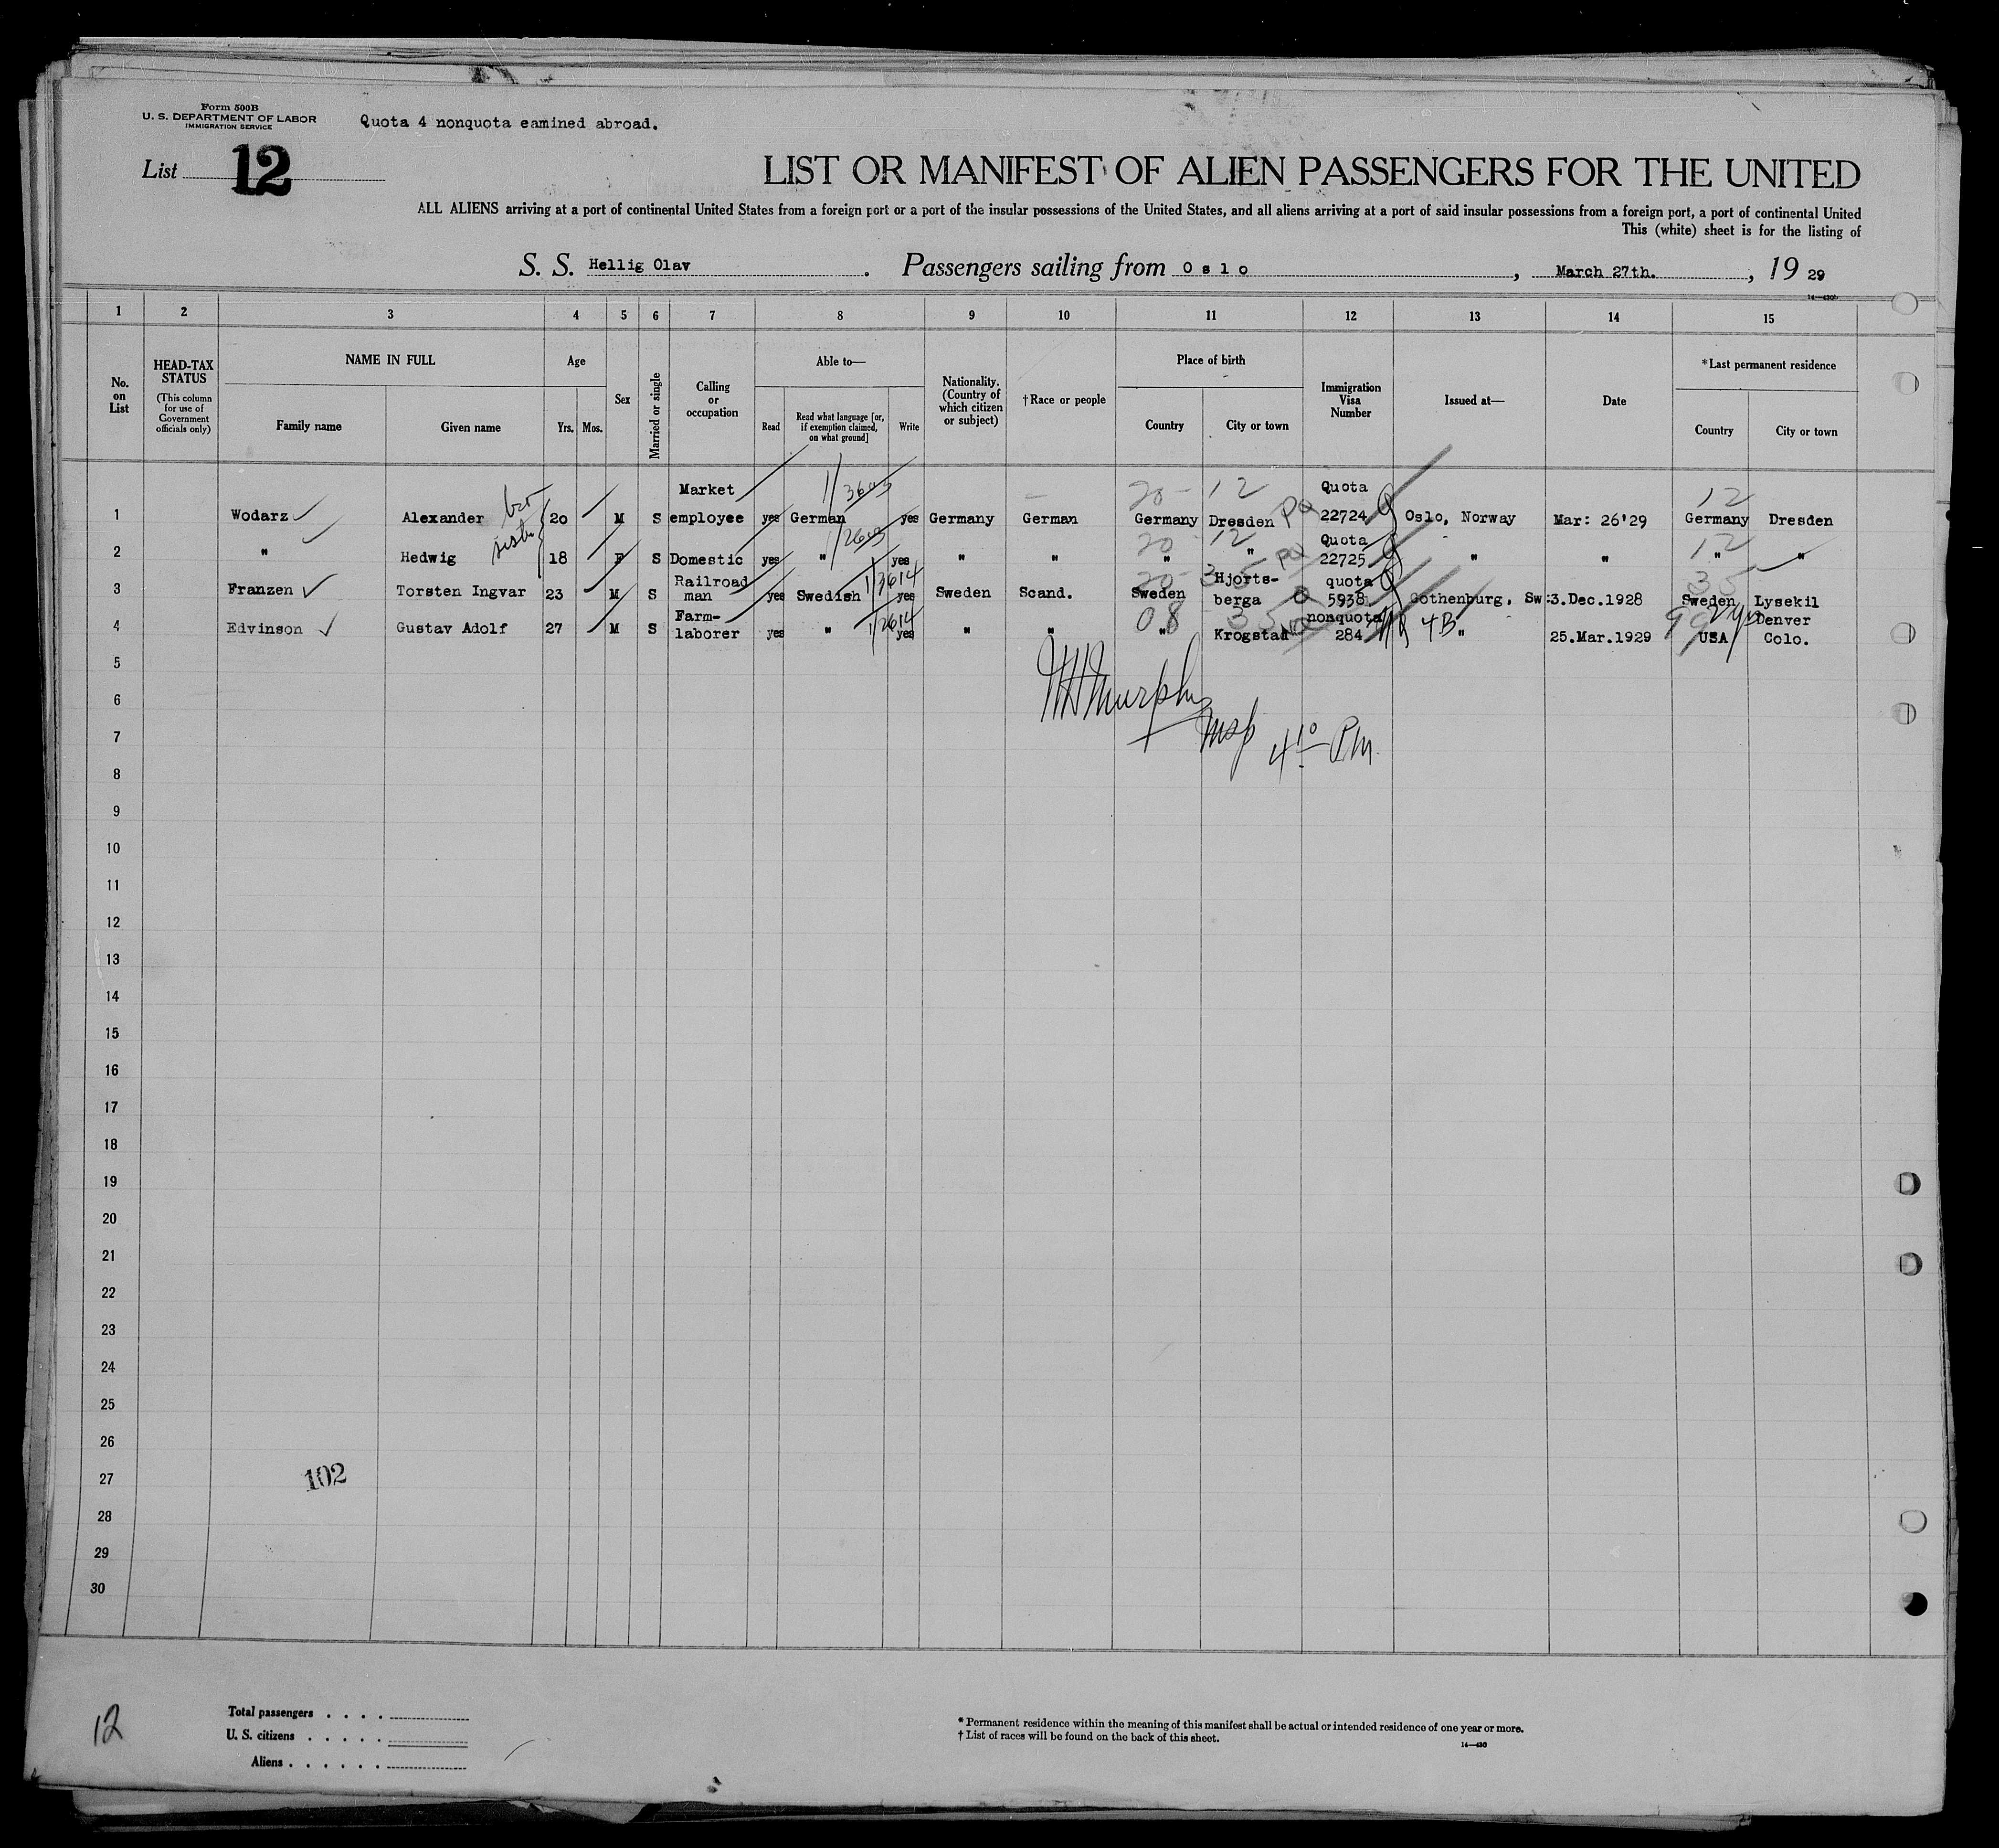 Form 500B
U. S. DEPARTMENT OF LABOR
IMMIGRATION SERVICE
Quota 4 nonquota eamined abroad.
List 12
LIST OR MANIFEST OF ALIEN PASSENGERS FOR THE UNITED
ALL ALIENS arriving at a port of continental United States from a foreign port or a port of the insular possessions of the United States, and all aliens arriving at a port of said insular possessions from a foreign port, a port of continental United
This (white) sheet is for the listing of
S. S. Hellig Olav . Passengers sailing from Oslo , March 27th. , 19 29
14—430b
1 2 3 4 5 6 7 8 9 10 11 12 13 14 15
No. on List
HEAD-TAX STATUS
(This column for use of Government officials only)
NAME IN FULL
Family name Given name
Age
Yrs. Mos.
Sex
Married or single
Calling or occupation
Able to—
Read Read what language [or, if exemption claimed, on what ground] Write
Nationality. (Country of which citizen or subject)
†Race or people
Place of birth
Country City or town
Immigration Visa Number
Issued at—
Date
*Last permanent residence
Country City or town
Market 20 - 12 Quota 12
1 Wodarz Alexander bro 20 M S employee yes German yes Germany German Germany Dresden PQ 22724 Oslo, Norway Mar: 26'29 Germany Dresden
20 12 Quota 12
2 " Hedwig sister 18 F S Domestic yes " yes " " " " PQ 22725 " " " "
Railroad 1/3614 20 Hjorts- quota 35
3 Franzen Torsten Ingvar 23 M S man yes Swedish yes Sweden Scand. Sweden berga 5938 Gothenburg, Sw: 3.Dec.1928 Sweden Lysekil
Farm- 1/2614 08 nonquota 99 Denver
4 Edvinson Gustav Adolf 27 M S laborer yes " yes " " " Krogstad 284 4B " 25.Mar.1929 USA Colo.
5
6 Murphy
7 Insp 4 10 PM
8
9
10
11
12
13
14
15
16
17
18
19
20
21
22
23
24
25
26
27 102
28
29
30
12
Total passengers . . . .
U. S. citizens . . . . .
Aliens . . . . . .
* Permanent residence within the meaning of this manifest shall be actual or intended residence of one year or more.
† List of races will be found on the back of this sheet.
14—430